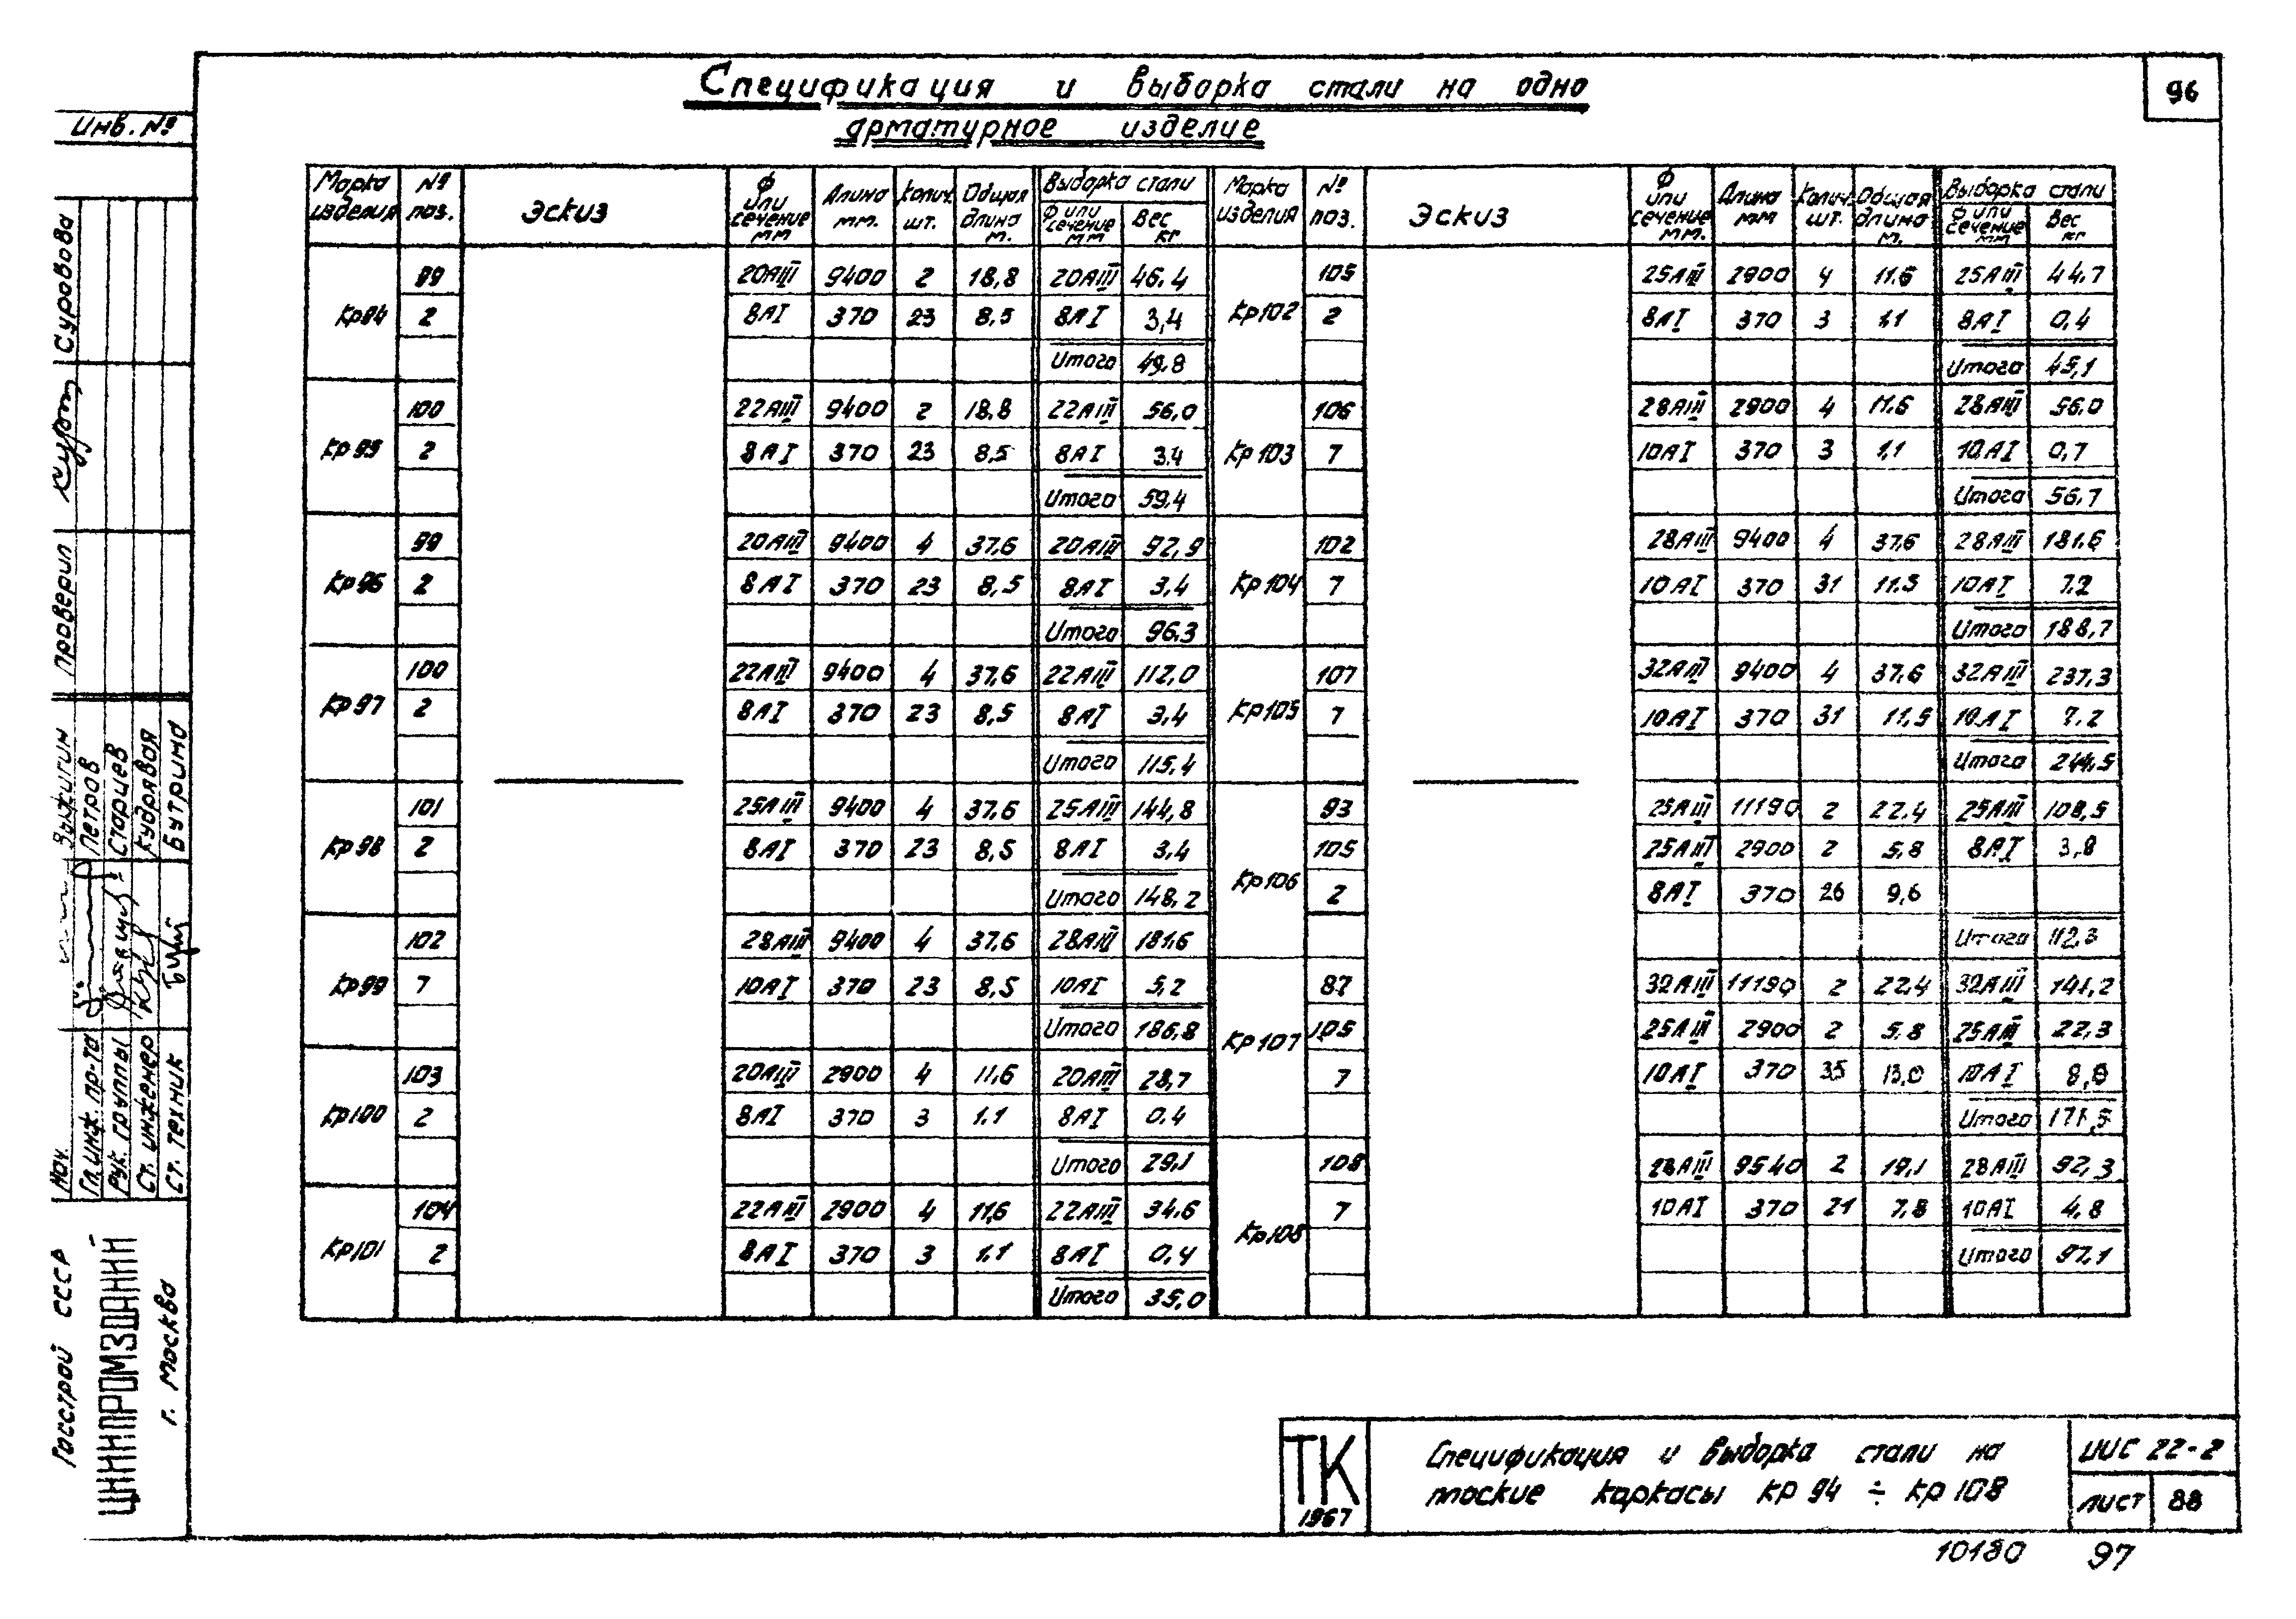 Спецификация и выборка стали на одно
арматурное изделие
96
Инв. №
Марка изделия № поз. Эскиз Ф или сечение мм Длина мм. Колич. шт. Общая длина м. Выборка стали Ф или сечение мм Вес кг
Кр94 99 20АIII 9400 2 18,8 20АIII 46.4
2 8АI 370 23 8,5 8АI 3,4
Итого 49.8
Кр95 100 22АIII 9400 2 18.8 22АIII 56,0
2 8АI 370 23 8,5 8АI 3.4
Итого 59.4
Кр96 99 20АIII 9400 4 37.6 20АIII 92,9
2 8АI 370 23 8,5 8АI 3,4
Итого 96.3
Кр97 100 22АIII 9400 4 37,6 22АIII 112,0
2 8АI 370 23 8,5 8АI 3.4
Итого 115,4
Кр98 101 25АIII 9400 4 37,6 25АIII 144,8
2 8АI 370 23 8,5 8АI 3,4
Итого 148,2
Кр99 102 28АIII 9400 4 37.6 28АIII 181.6
7 10АI 370 23 8,5 10АI 5,2
Итого 186,8
Кр100 103 20АIII 2900 4 11,6 20АIII 28,7
2 8АI 370 3 1.1 8АI 0.4
Итого 29,1
Кр101 104 22АIII 2900 4 11,6 22АIII 34.6
2 8АI 370 3 1.1 8АI 0,4
Итого 35,0
Марка изделия № поз. Эскиз Ф или сечение мм. Длина мм Колич. шт. Общая длина м. Выборка стали Ф или сечение мм Вес кг
Кр102 105 25АIII 2900 4 11.6 25АIII 44.7
2 8АI 370 3 1,1 8АI 0,4
Итого 45,1
Кр103 106 28АIII 2900 4 11.6 28АIII 56.0
7 10АI 370 3 1,1 10АI 0,7
Итого 56,7
Кр104 102 28АIII 9400 4 37.6 28АIII 181.6
7 10АI 370 31 11.5 10АI 7.2
Итого 188,7
Кр105 107 32АIII 9400 4 37,6 32АIII 237,3
7 10АI 370 31 11,5 10АI 7.2
Итого 244,5
Кр106 93 25АIII 11190 2 22.4 25АIII 108,5
105 25АIII 2900 2 5.8 8АI 3,8
2 8АI 370 26 9,6
Итого 112,3
Кр107 87 32АIII 11190 2 22,4 32АIII 141,2
105 25АIII 2900 2 5.8 25АIII 22,3
7 10АI 370 35 13,0 10АI 8,0
Итого 171,5
Кр108 108 28АIII 9540 2 19,1 28АIII 92,3
7 10АI 370 21 7,8 10АI 4,8
Итого 97,1
проверил Суровова
Нач. Выжигин
Гл.инж. пр-та Петров
Рук. группы Старцев
Ст. инженер Кудрявая
Ст. техник Бутрима
Госстрой СССР
ЦНИИПРОМЗДАНИЙ
г. Москва
ТК
1967
Спецификация и выборка стали на
плоские каркасы Кр94 ÷ Кр108
ИИС 22-2
лист 88
10180 97